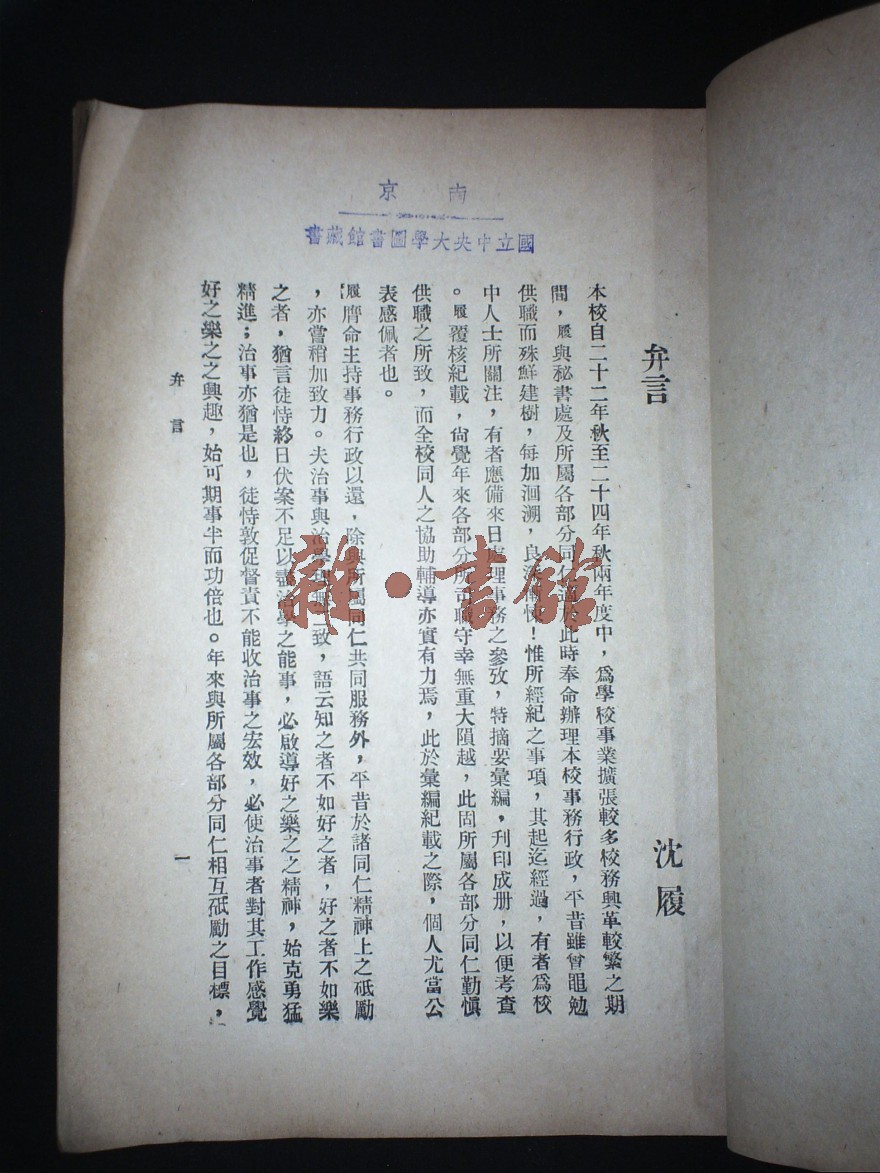 南京
國立中央大學圖書館藏書
弁言
沈履
本校自二十二年秋至二十四年秋兩年度中，爲學校事業擴張較多校務興革較繁之期
間，履與秘書處及所屬各部分同仁適於此時奉命辦理本校事務行政，平昔雖曾黽勉
供職而殊鮮建樹，每加洄溯，良深慚悚！惟所經紀之事項，其起迄經過，有者爲校
中人士所關注，有者應備來日處理事務之參攷，特摘要彙編，刋印成册，以便考查
。履覆核紀載，尙覺年來各部分所司職守幸無重大隕越，此固所屬各部分同仁勤愼
供職之所致，而全校同人之協助輔導亦實有力焉，此於彙編紀載之際，個人尤當公
表感佩者也。
履膺命主持事務行政以還，除與所屬同仁共同服務外，平昔於諸同仁精神上之砥勵
，亦嘗稍加致力。夫治事與治學理無二致，語云知之者不如好之者，好之者不如樂
之者，猶言徒恃終日伏案不足以盡治學之能事，必啟導好之樂之之精神，始克勇猛
精進；治事亦猶是也，徒恃敦促督責不能收治事之宏效，必使治事者對其工作感覺
好之樂之之興趣，始可期事半而功倍也。年來與所屬各部分同仁相互砥勵之目標，
弁言
一
雜·書館